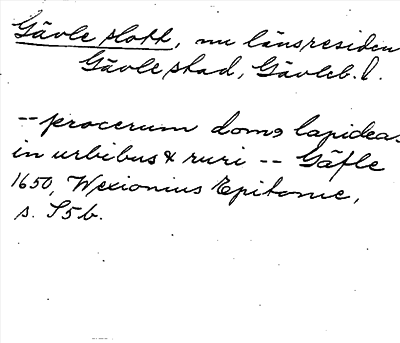 Gävle slott, nu länsresiden
Gävle stad, Gävleb. l.
-- procerum domꝯ lapideas
in urbibus & ruri -- Gäfle
1650, Wexionius Epitome,
s. S5b.